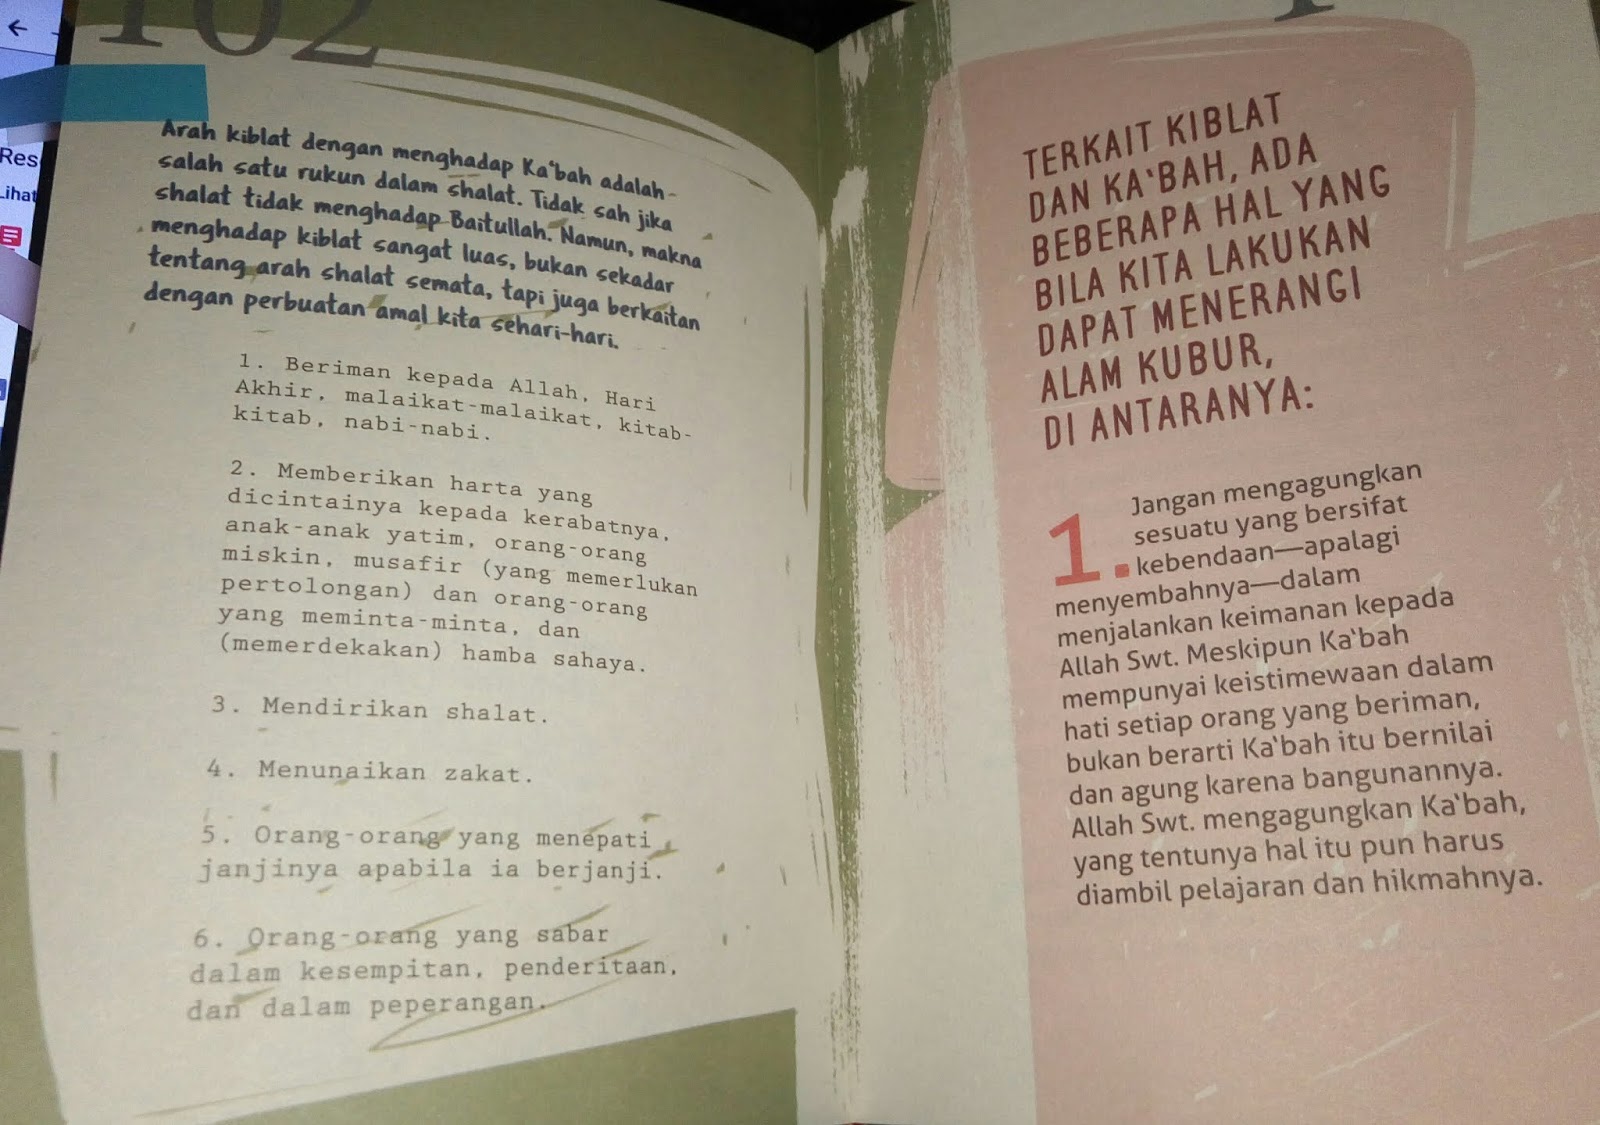 Res
Lihat
102
Arah kiblat dengan menghadap Ka'bah adalah
salah satu rukun dalam shalat. Tidak sah jika
shalat tidak menghadap Baitullah. Namun, makna
menghadap kiblat sangat luas, bukan sekadar
tentang arah shalat semata, tapi juga berkaitan
dengan perbuatan amal kita sehari-hari.
1. Beriman kepada Allah, Hari
Akhir, malaikat-malaikat, kitab-
kitab, nabi-nabi.
2. Memberikan harta yang
dicintainya kepada kerabatnya,
anak-anak yatim, orang-orang
miskin, musafir (yang memerlukan
pertolongan) dan orang-orang
yang meminta-minta, dan
(memerdekakan) hamba sahaya.
3. Mendirikan shalat.
4. Menunaikan zakat.
5. Orang-orang yang menepati
janjinya apabila ia berjanji.
6. Orang-orang yang sabar
dalam kesempitan, penderitaan,
dan dalam peperangan.
TERKAIT KIBLAT
DAN KA'BAH, ADA
BEBERAPA HAL YANG
BILA KITA LAKUKAN
DAPAT MENERANGI
ALAM KUBUR,
DI ANTARANYA:
1. Jangan mengagungkan
sesuatu yang bersifat
kebendaan—apalagi
menyembahnya—dalam
menjalankan keimanan kepada
Allah Swt. Meskipun Ka'bah
mempunyai keistimewaan dalam
hati setiap orang yang beriman,
bukan berarti Ka'bah itu bernilai
dan agung karena bangunannya.
Allah Swt. mengagungkan Ka'bah,
yang tentunya hal itu pun harus
diambil pelajaran dan hikmahnya.